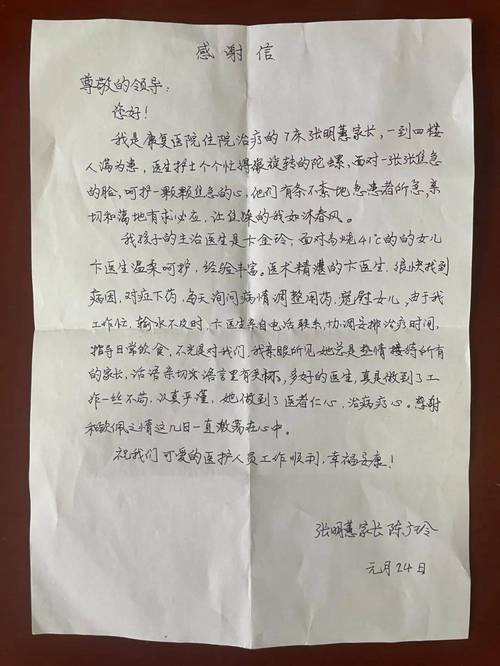 感谢信
尊敬的领导：
您好！
我是康复医院住院治疗的7床张明蕙家长，一到四楼
人满为患，医生护士个个忙得像旋转的陀螺，面对一张张焦急
的脸，呵护一颗颗焦急的心，他们有条不紊地急患者所急，亲
切和蔼地有求必应，让焦躁的我如沐春风。
我孩子的主治医生是卞金玲，面对高烧41℃的的女儿
卞医生温柔呵护，经验丰富。医术精湛的卞医生，很快找到
病因，对症下药，每天询问病情调整用药，慰慰女儿，由于我
工作忙，输水不及时，卞医生亲自电话联系，协调安排治疗时间，
指导日常饮食，不光是对我们，我亲眼所见她总是热情接待所有
的家长，话语亲切，语言里有关怀，多好的医生，真是做到了工
作一丝不苟，认真严谨，她做到了医者仁心，治病疗心。感谢
和钦佩之情这几日一直激荡在心中。
祝我们可爱的医护人员工作顺利，幸福安康！
张明蕙家长 陈广玲
元月24日